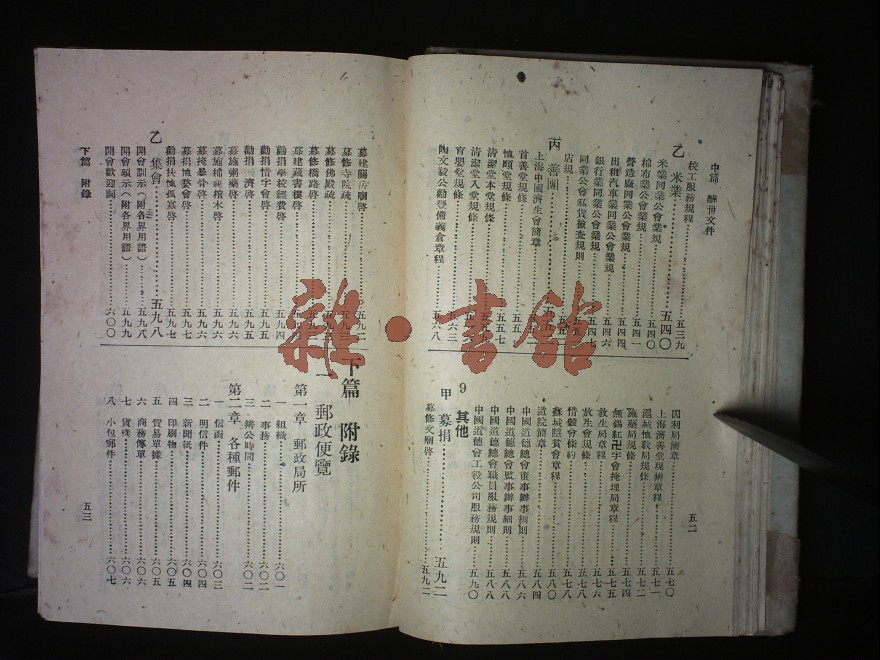 中篇 酬世文件
校工服務規程⋯⋯五三九
乙 米業⋯⋯五四〇
米業同業公會業規⋯⋯五四〇
棉布業公會業規⋯⋯五四一
營造廠同業公會業規⋯⋯五四四
出租汽車業同業公會業規⋯⋯五四六
銀行業同業公會業規⋯⋯五四七
同業公會私貨檢查規則
店規
丙 善團
上海中國濟生會簡章
首善堂規條
恤頤堂規條
清潔堂本堂規條⋯⋯五五七
清潔堂入堂規條
育嬰堂規條⋯⋯五六三
陶文毅公勸學備義倉章程⋯⋯五六八
因利局簡章⋯⋯五七〇
上海濟善堂現辦章程⋯⋯五七一
恤嫠局規條⋯⋯五七二
施藥局規條⋯⋯五七四
無錫紅卍字會掩埋局章程⋯⋯五七五
救生局章程⋯⋯五七六
放生會規條⋯⋯五七七
惜穀會條約⋯⋯五七八
蘇城賑貧會章程⋯⋯五八〇
道院簡章⋯⋯五八四
中國道德總會董事辦事細則⋯⋯五八六
中國道德總會監事辦事細則⋯⋯五八八
中國道德總會職員服務規則⋯⋯五八八
中國道德會工役公司服務規則⋯⋯五九〇
9 其他
甲 募捐⋯⋯五九二
募修文廟啓⋯⋯五九二
五二
募建關岳廟啓⋯⋯五九二
募修寺院疏
募修佛殿疏
募修橋路啓
募建藏書樓啓
勸捐學校經費啓⋯⋯五九四
勸捐惜字會啓⋯⋯五九五
勸捐濟啓⋯⋯五九五
募施粥藥啓⋯⋯五九六
募施棉衣棺木啓⋯⋯五九六
募掩暴骨啓⋯⋯五九六
募捐恤嫠會啓⋯⋯五九七
勸捐扶恤孤寡啓⋯⋯五九七
乙 集會⋯⋯五九八
開會訓示(附各界用語)⋯⋯五九八
開會頌示(附各界用語)⋯⋯五九九
開會歡迎詞⋯⋯六〇〇
下篇 附錄
一 郵政便覽
第一章 郵政局所
一 組織⋯⋯六〇一
二 事務⋯⋯六〇二
三 辦公時間⋯⋯六〇二
第二章 各種郵件
一 信函⋯⋯六〇三
二 明信件⋯⋯六〇四
三 新聞紙⋯⋯六〇四
四 印刷物⋯⋯六〇五
五 貿易單據⋯⋯六〇五
六 商務傳單⋯⋯六〇六
七 貨樣⋯⋯六〇六
八 小包郵件⋯⋯六〇七
下篇 附錄
五三
雜·書館